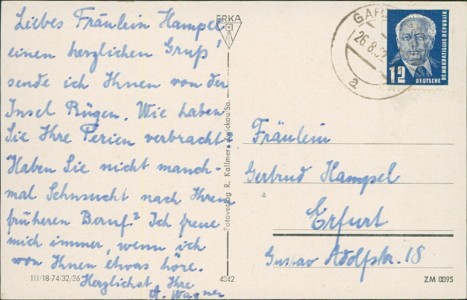 Liebes Fräulein Hampel,
einen herzlichen Gruß
sende ich Ihnen von der
Insel Rügen. Wie haben
Sie Ihre Ferien verbracht?
Haben Sie nicht manch-
mal Sehnsucht nach Ihrem
früheren Beruf? Ich freue
mich immer, wenn ich
von Ihnen etwas höre.
Herzlichst Ihre
A. Wagner
III/18-74:32/36
4342
ERKA
Fotoverlag R. Kallmer, Zwickau/Sa.
GA
26.8.
a
12
DEUTSCHE
DEMOKRATISCHE REPUBLIK
Fräulein
Gertrud Hampel
Erfurt
Gustav Adolfstr. 18
ZM 0095